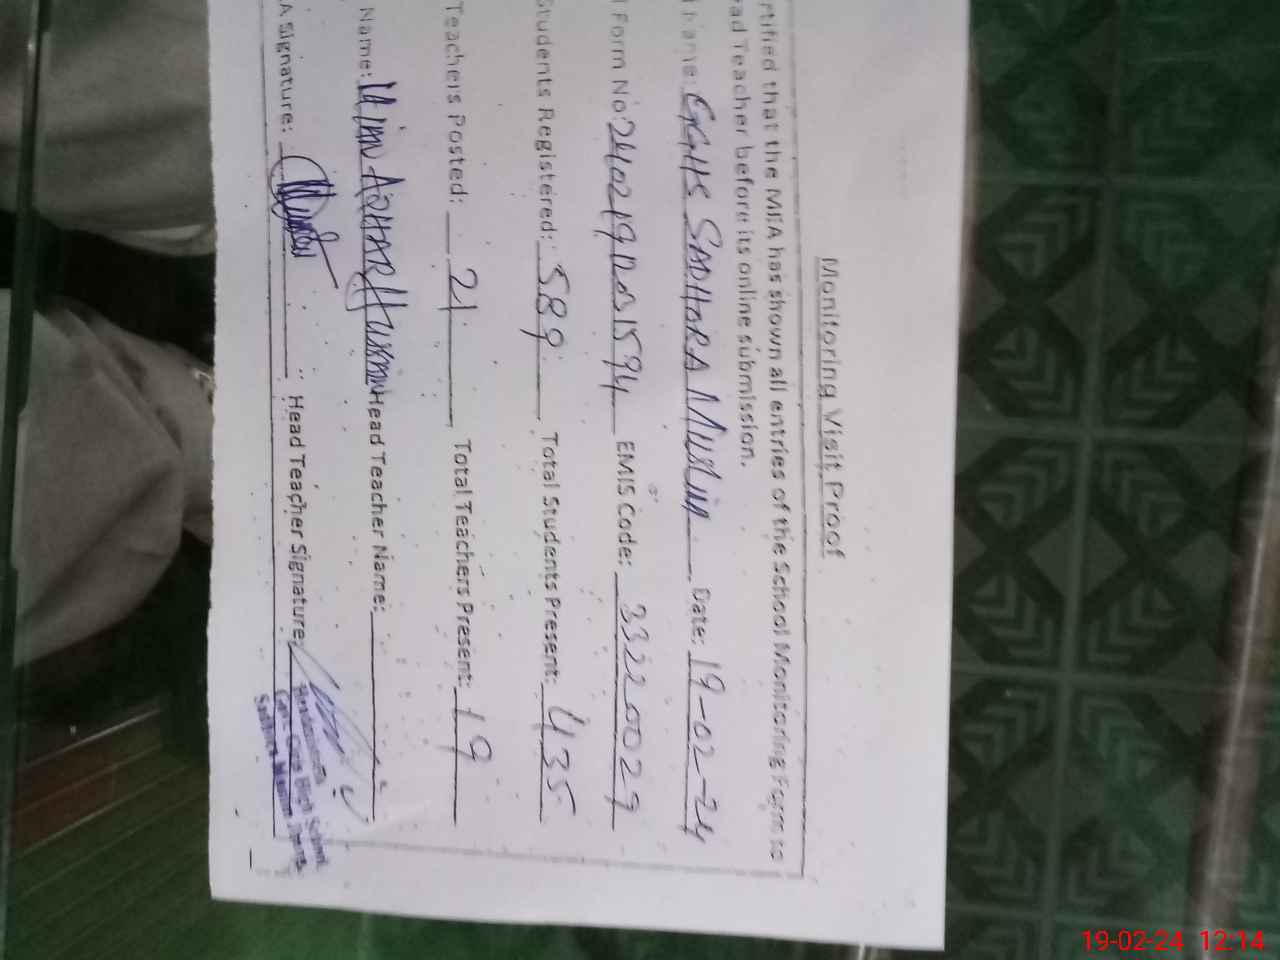 Monitoring Visit Proof
rtified that the MEA has shown all entries of the School Monitoring Form to
ead Teacher before its online submission.
Name: GGHS SADHORA MUSLIM Date: 19-02-24
Form No: EMIS Code: 33220029
Students Registered: 589 Total Students Present: 435
Teachers Posted: 21 Total Teachers Present: 19
Name: AZHAR Head Teacher Name:
A Signature: Head Teacher Signature:
Headmistress
Govt. Girls High School
19-02-24 12:14